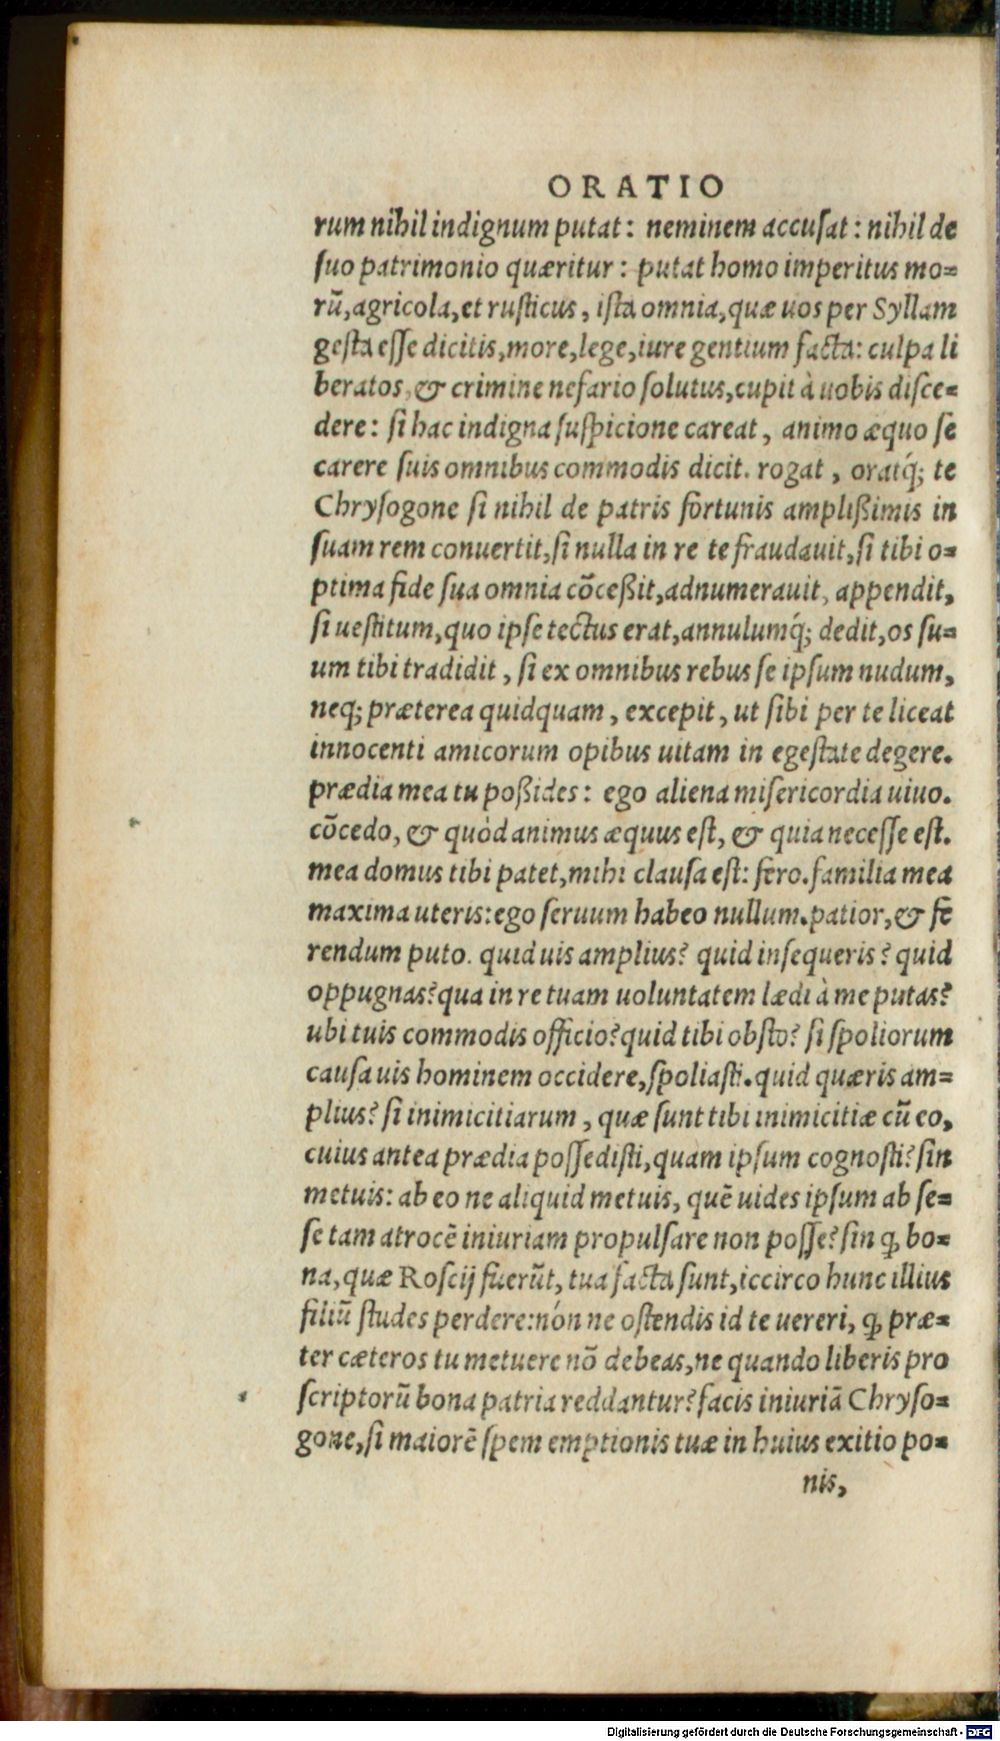 ORATIO
rum nihil indignum putat: neminem accusat: nihil de
suo patrimonio quæritur: putat homo imperitus mo=
rũ, agricola, et rusticus, ista omnia, quæ uos per Syllam
gesta esse dicitis, more, lege, iure gentium facta: culpa li
beratos, & crimine nefario solutus, cupit à uobis disce=
dere: si hac indigna suspicione careat, animo æquo se
carere suis omnibus commodis dicit. rogat, oratq́; te
Chrysogone si nihil de patris fortunis amplißimis in
suam rem conuertit, si nulla in re te fraudauit, si tibi o=
ptima fide sua omnia cõceßit, adnumerauit, appendit,
si uestitum, quo ipse tectus erat, annulumq́; dedit, os su=
um tibi tradidit, si ex omnibus rebus se ipsum nudum,
neq; præterea quidquam, excepit, ut sibi per te liceat
innocenti amicorum opibus uitam in egestate degere.
prædia mea tu poßides: ego aliena misericordia uiuo.
cõcedo, & quòd animus æquus est, & quia necesse est.
mea domus tibi patet, mihi clausa est: fero. familia mea
maxima uteris: ego seruum habeo nullum. patior, & fe
rendum puto. quid uis amplius? quid insequeris? quid
oppugnas? qua in re tuam uoluntatem lædi à me putas?
ubi tuis commodis officio? quid tibi obsto? si spoliorum
causa uis hominem occidere, spoliasti. quid quæris am=
plius? si inimicitiarum, quæ sunt tibi inimicitiæ cũ eo,
cuius antea prædia possedisti, quam ipsum cognosti? sin
metuis: ab eo ne aliquid metuis, quẽ uides ipsum ab se=
se tam atrocẽ iniuriam propulsare non posse? sin ꝙ bo=
na, quæ Roscij fuerũt, tua facta sunt, iccirco hunc illius
filiũ studes perdere: nón ne ostendis id te uereri, ꝙ præ=
ter cæteros tu metuere nõ debeas, ne quando liberis pro
scriptorũ bona patria reddantur? facis iniuriã Chryso=
gone, si maiorẽ spem emptionis tuæ in huius exitio po=
nis,
Digitalisierung gefördert durch die Deutsche Forschungsgemeinschaft - DFG